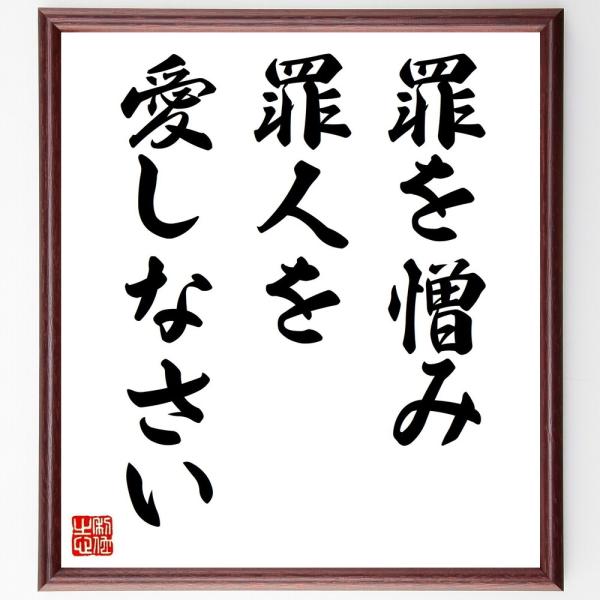 罪を憎み
罪人を
愛しなさい